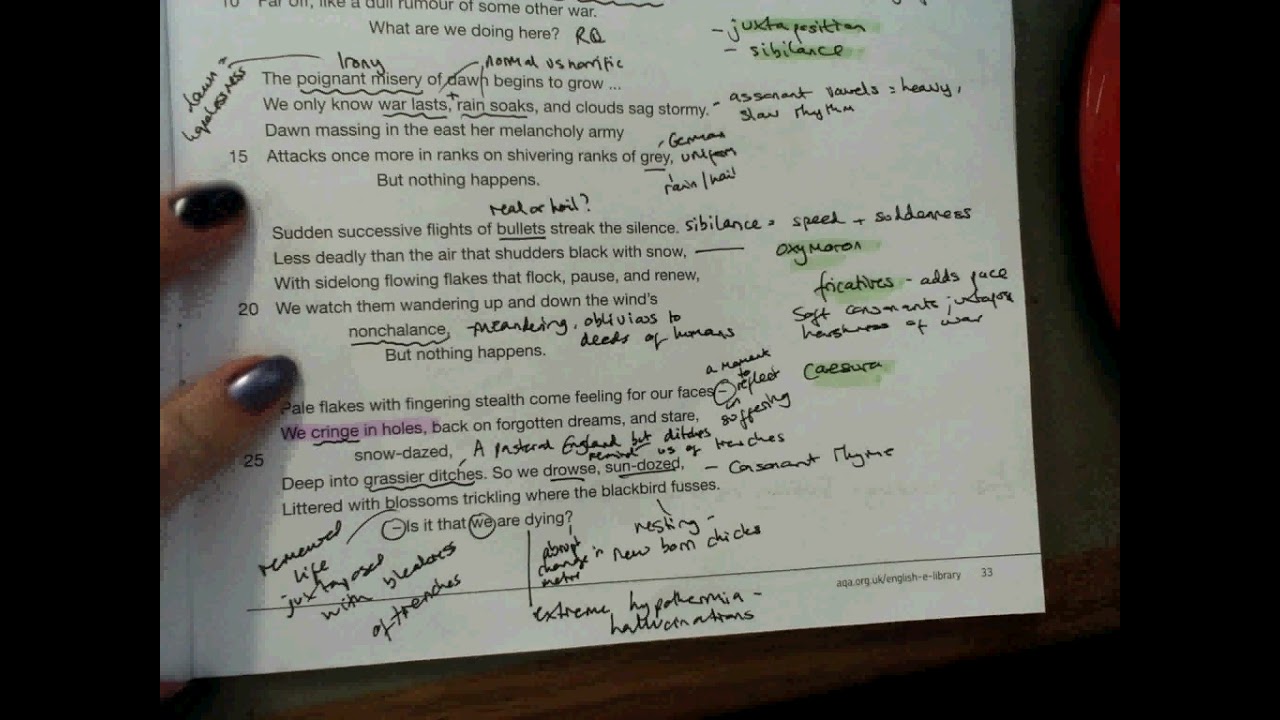 10 Far off, like a dull rumour of some other war.
What are we doing here? RQ
- juxtaposition
- sibilance
Irony
normal vs horrific
dawn =
hopelessness
The poignant misery of dawn begins to grow ...
We only know war lasts, + rain soaks, and clouds sag stormy. - assonant vowels = heavy,
slow rhythm
Dawn massing in the east her melancholy army
German
15 Attacks once more in ranks on shivering ranks of grey, uniform
rain / hail
But nothing happens.
real or hail?
Sudden successive flights of bullets streak the silence. sibilance = speed + suddenness
Less deadly than the air that shudders black with snow, — oxymoron
With sidelong flowing flakes that flock, pause, and renew,
fricatives - adds pace
20 We watch them wandering up and down the wind's
soft consonants juxtapose
harshness of war
nonchalance, - meandering, oblivious to
deeds of humans
But nothing happens.
a moment
to
reflect
on
suffering
Caesura
Pale flakes with fingering stealth come feeling for our faces –
We cringe in holes, back on forgotten dreams, and stare,
25 snow-dazed, A pastoral England but ditches
remind us of trenches
Deep into grassier ditches. So we drowse, sun-dozed, - consonant rhyme
Littered with blossoms trickling where the blackbird fusses.
– Is it that we are dying?
renewed
life
juxtaposed
with bleakness
of trenches
abrupt
change in
metre
nesting -
new born chicks
extreme hypothermia -
hallucinations
aqa.org.uk/english-e-library 33